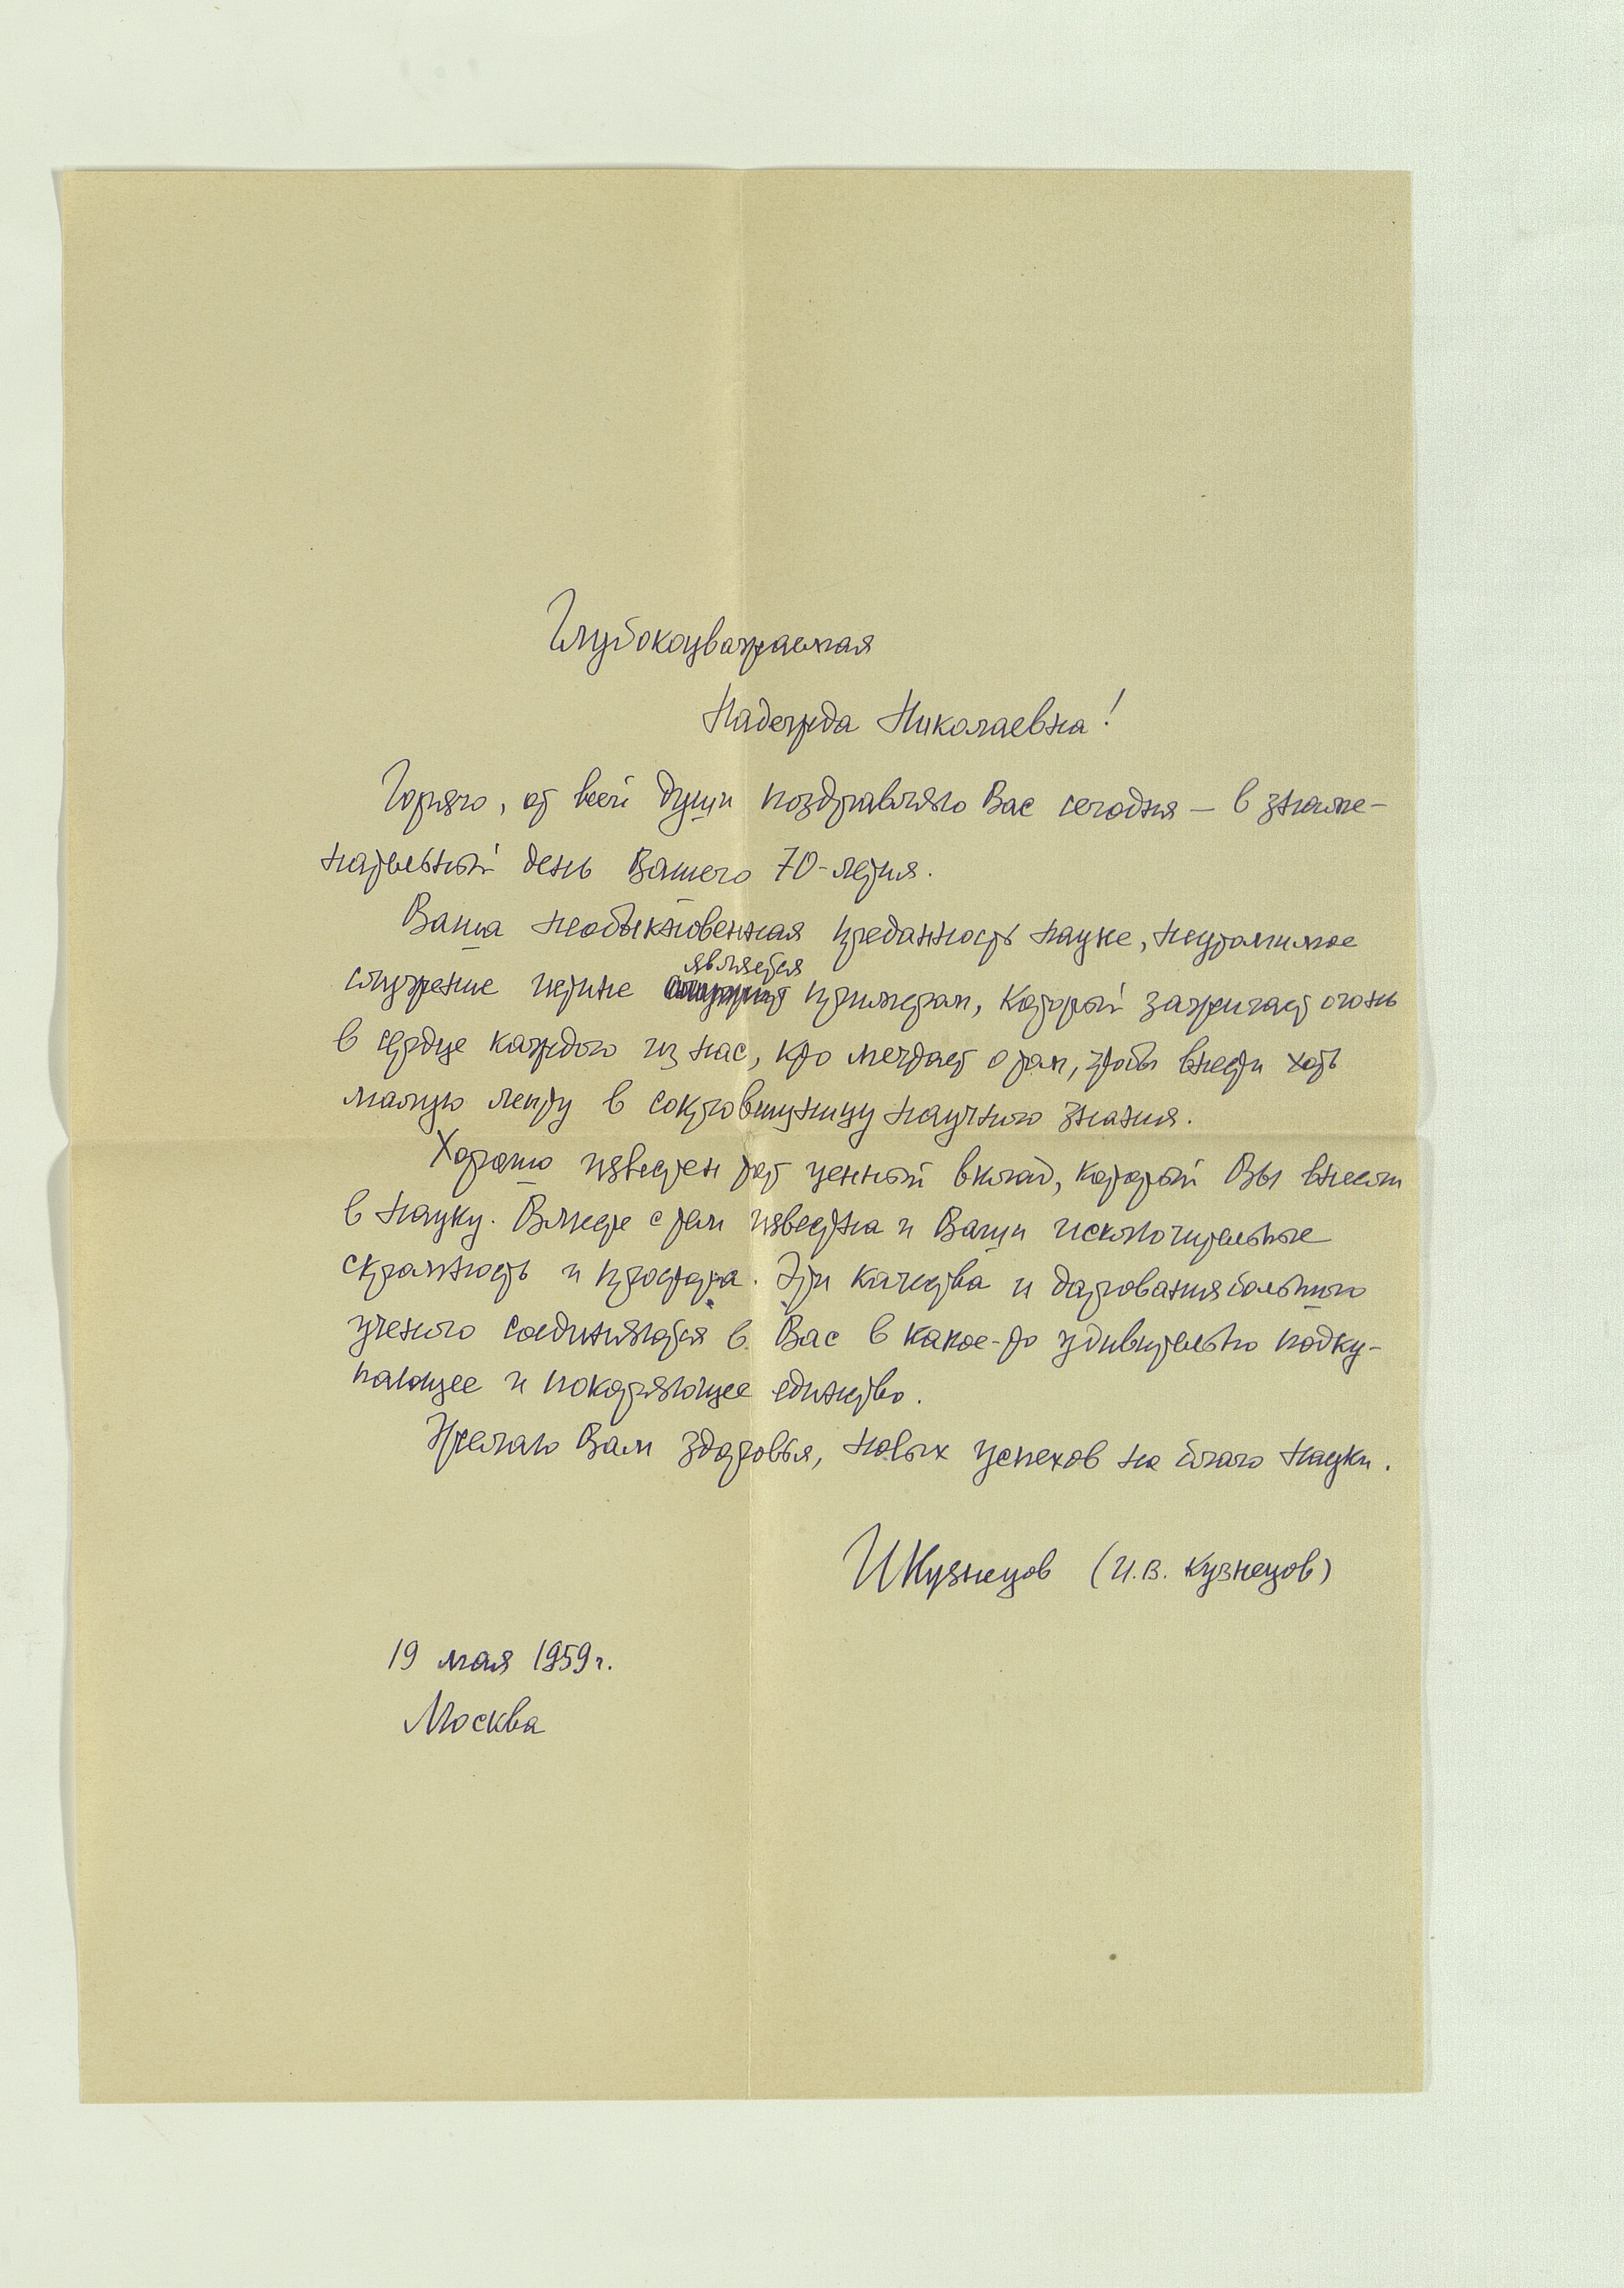 Глубокоуважаемая
Надежда Николаевна!
Горячо, от всей души поздравляю Вас сегодня — в знаме-
нательный день Вашего 70-летия.
Ваша необыкновенная преданность науке, неутомимое
является
служение истине примером, который зажигает огонь
в сердце каждого из нас, кто мечтает о том, чтобы внести хоть
малую лепту в сокровищницу научного знания.
Хорошо известен тот ценный вклад, который Вы внесли
в науку. Вместе с тем известна и Ваши исключительные
скромность и простота. Эти качества и дарования большого
ученого соединяются в Вас в какое-то удивительно подку-
пающее и покоряющее единство.
Желаю Вам здоровья, новых успехов на благо науки.
ИКузнецов (И.В. Кузнецов)
19 мая 1959г.
Москва